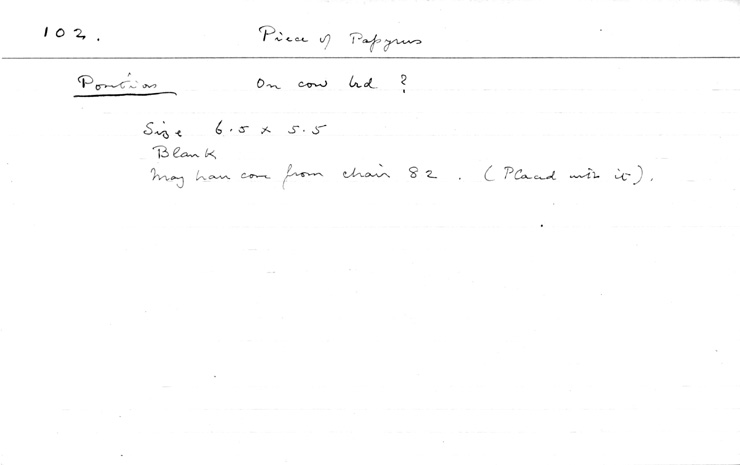 102. Piece of Papyrus
Position On cow bed ?
Size 6.5 x 5.5
Blank
May have come from chair 82. (Placed with it).